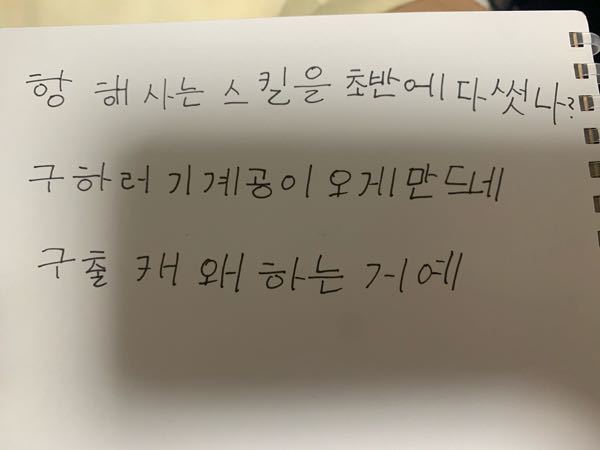 항해사는 스킬을 초반에 다썻나?
구하러 기계공이 오게만드네
구출 캐 왜 하는 거예